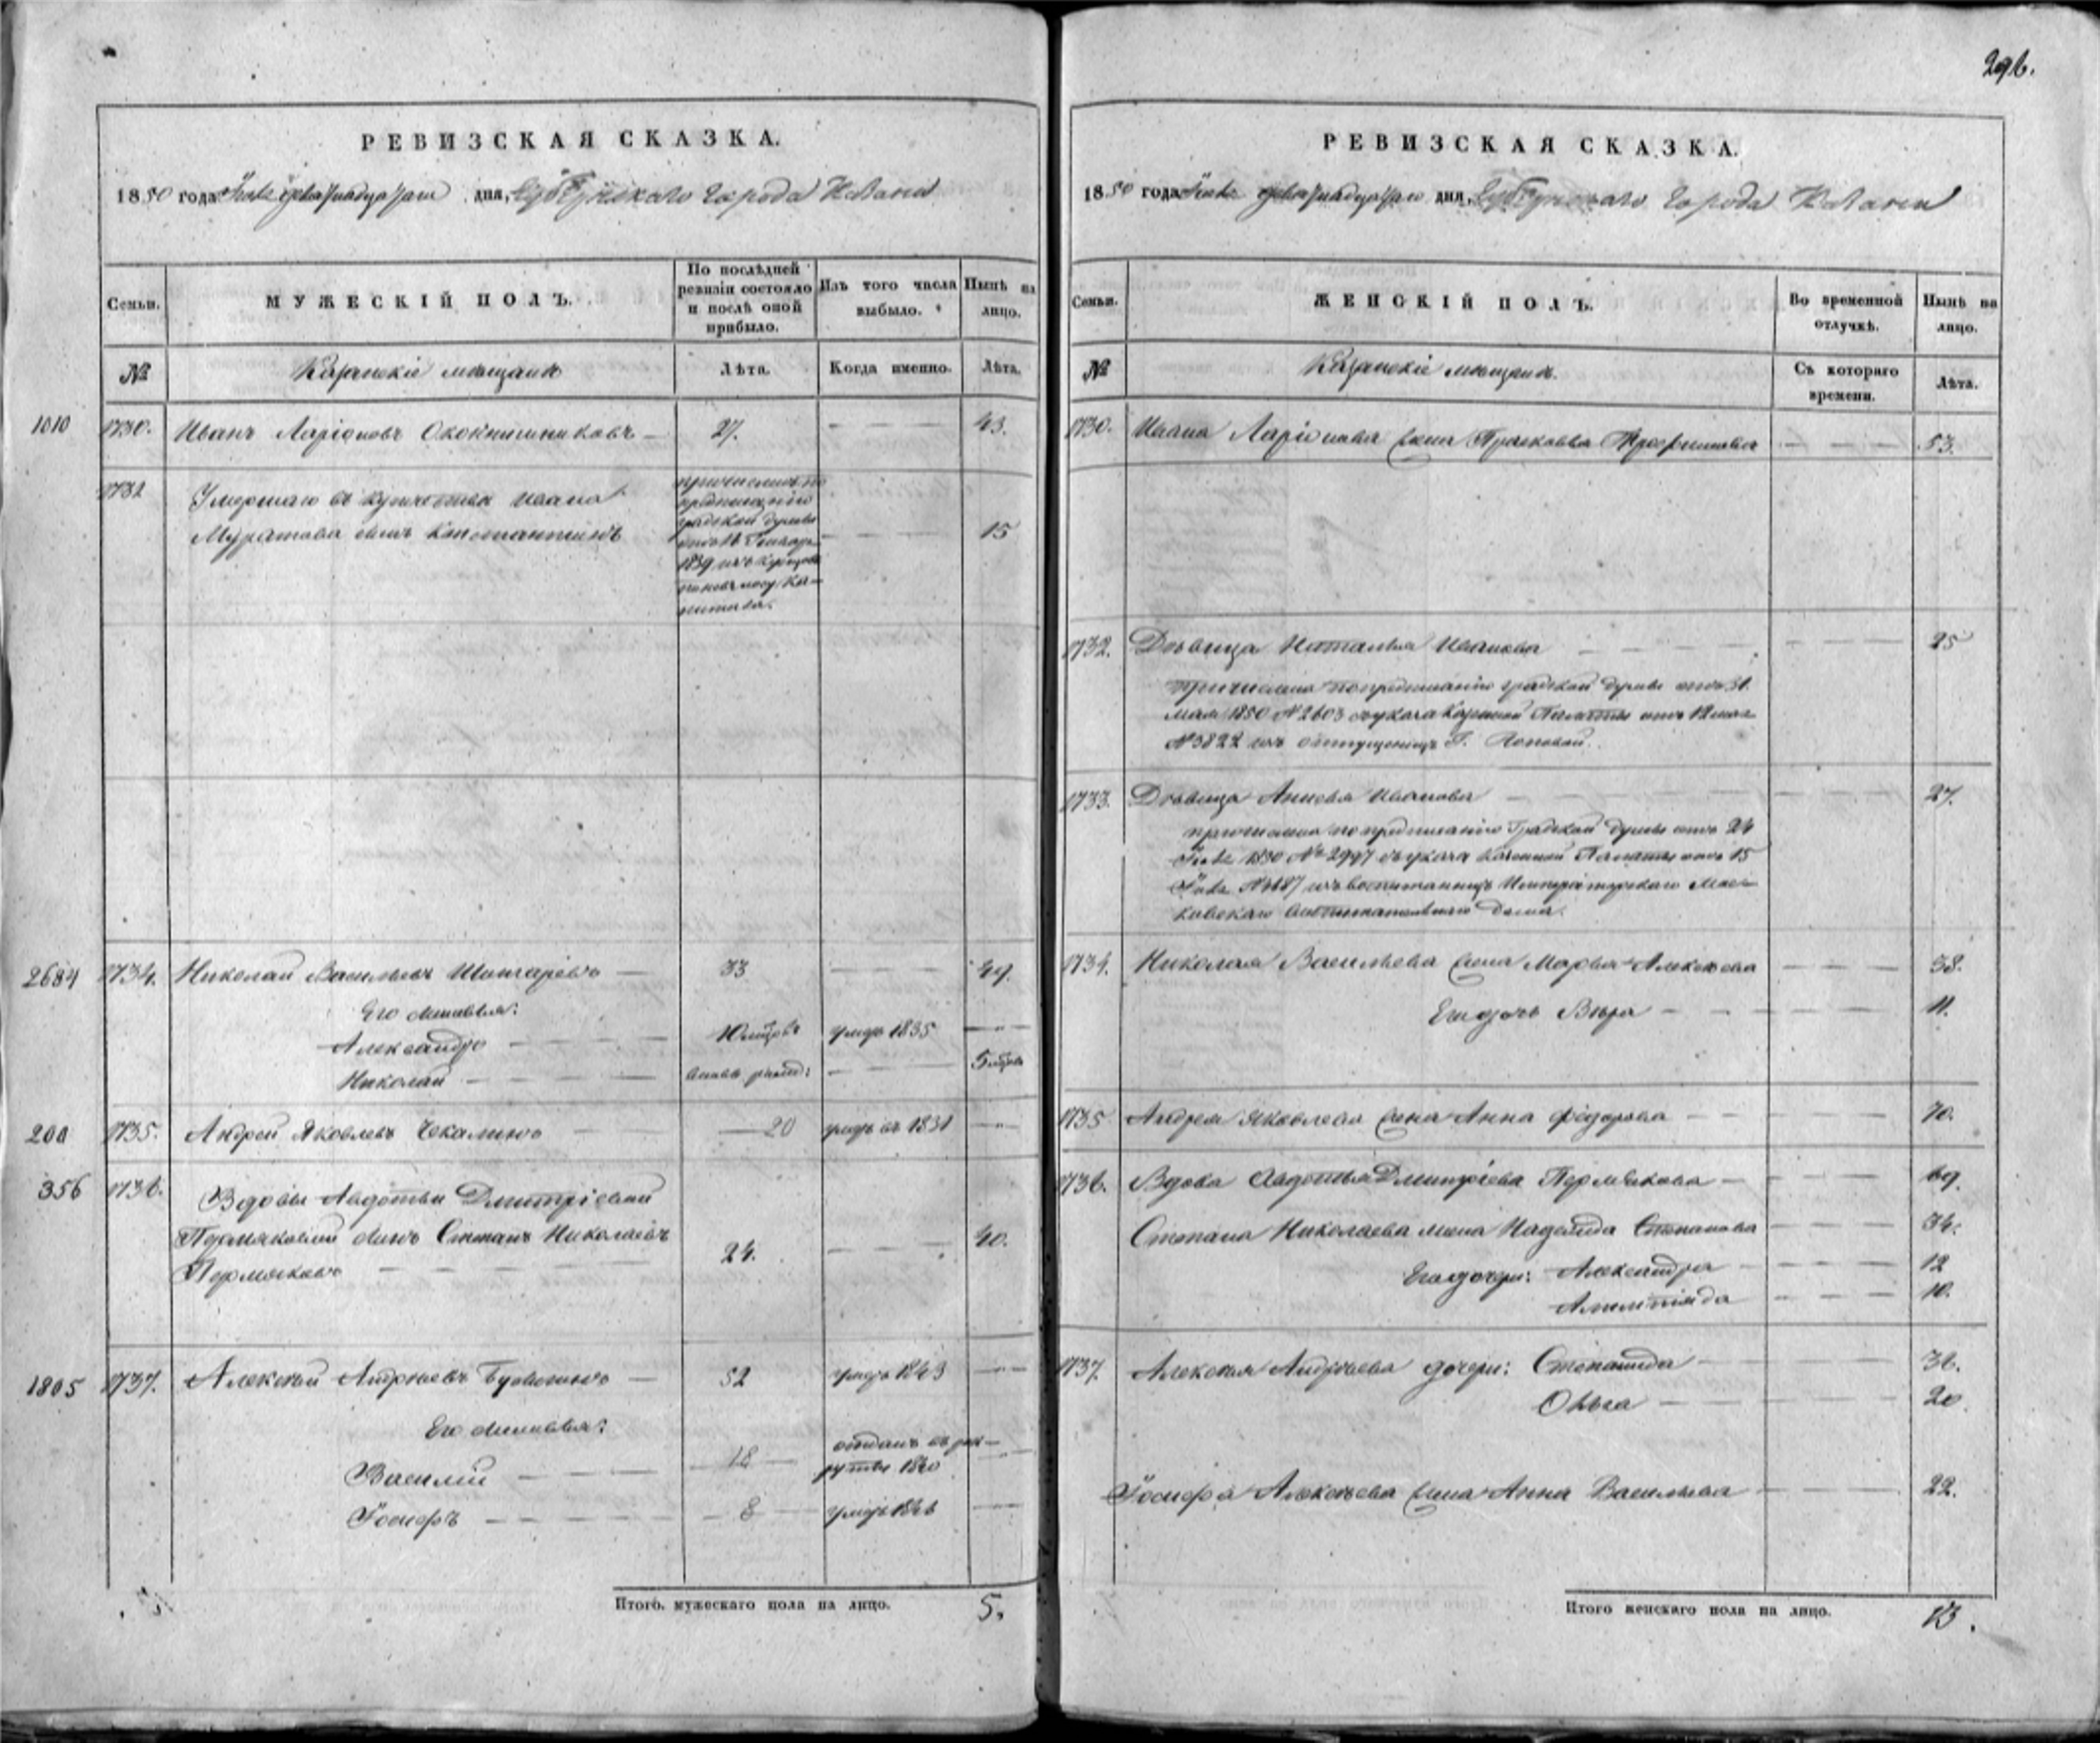 296.
РЕВИЗСКАЯ СКАЗКА.
1850 года дня, Губернскаго города Казани
Семьи. МУЖЕСКІЙ ПОЛЪ. По послѣдней ревизіи состояло и послѣ оной прибыло. Изъ того числа выбыло. Нынѣ на лицо.
№ Казанскіе мещане Лѣта. Когда именно. Лѣта.
1010 1730. Иванъ Ларіоновъ Оконишниковъ 27. 43.
1731 Умершаго въ купечестве Ивана
Муратова сынъ Константинъ 15
причисленъ по
предписанію
градской думы
отъ 16 Генваря
1839 изъ купцовъ
питала.
2684 1734. Николай Васильевъ 33 49.
Его сыновья:
Александръ 10 мцовъ умеръ 1835
Николай вновь рожд: 5 мцовъ
200 1735. Андрей Яковлевъ Чекалинъ 20 умеръ въ 1831
356 1736. Вдовы Авдотьи Дмитріевой
Пермяковой сынъ Степанъ Николаевъ 24. 40.
Пермяковъ
1805 1737. Алексѣй Андреевъ 52 умеръ 1843
Его сыновья:
Василій 18 отданъ въ рек-
руты 1840
Іосифъ 8 умеръ 1846
Итого. мужескаго пола на лицо. 5.
РЕВИЗСКАЯ СКАЗКА.
1850 года дня, Губернскаго города Казани
Семьи. ЖЕНСКІЙ ПОЛЪ. Во временной отлучкѣ. Нынѣ на лицо.
№ Казанскіе мещане. Съ котораго времени. Лѣта.
1730. Ивана Ларіонова жена Прасковья 53.
1732. Дѣвица Наталья Иванова 25
причислена по предписанію градской думы отъ 31.
мая 1850 № 2603 съ указа Казенной Палаты отъ 12 мая
№ 3822 изъ Г. Поповой.
1733. Дѣвица Анисья Иванова 27.
причислена по предписанію Градской думы отъ 24
1850 № 2997 съ указа Казенной Палаты отъ 15
изъ воспитанницъ Императорскаго Мос-
ковскаго Воспитательнаго дома.
1734. Николая Васильева жена Марья Алексѣева 38.
Его дочь Вѣра 11.
1735 Андрея Яковлева жена Анна Федорова 70.
1736. Вдова Авдотья Дмитріева Пермякова 69.
Степана Николаева жена Надежда Степанова 34.
Его дочери: Александра 12
10.
1737. Алексѣя Андреева дочери: Степанида 36.
Ольга 20
Іосифа Алексѣева жена Анна Васильева 22.
Итого женскаго пола на лицо. 13.